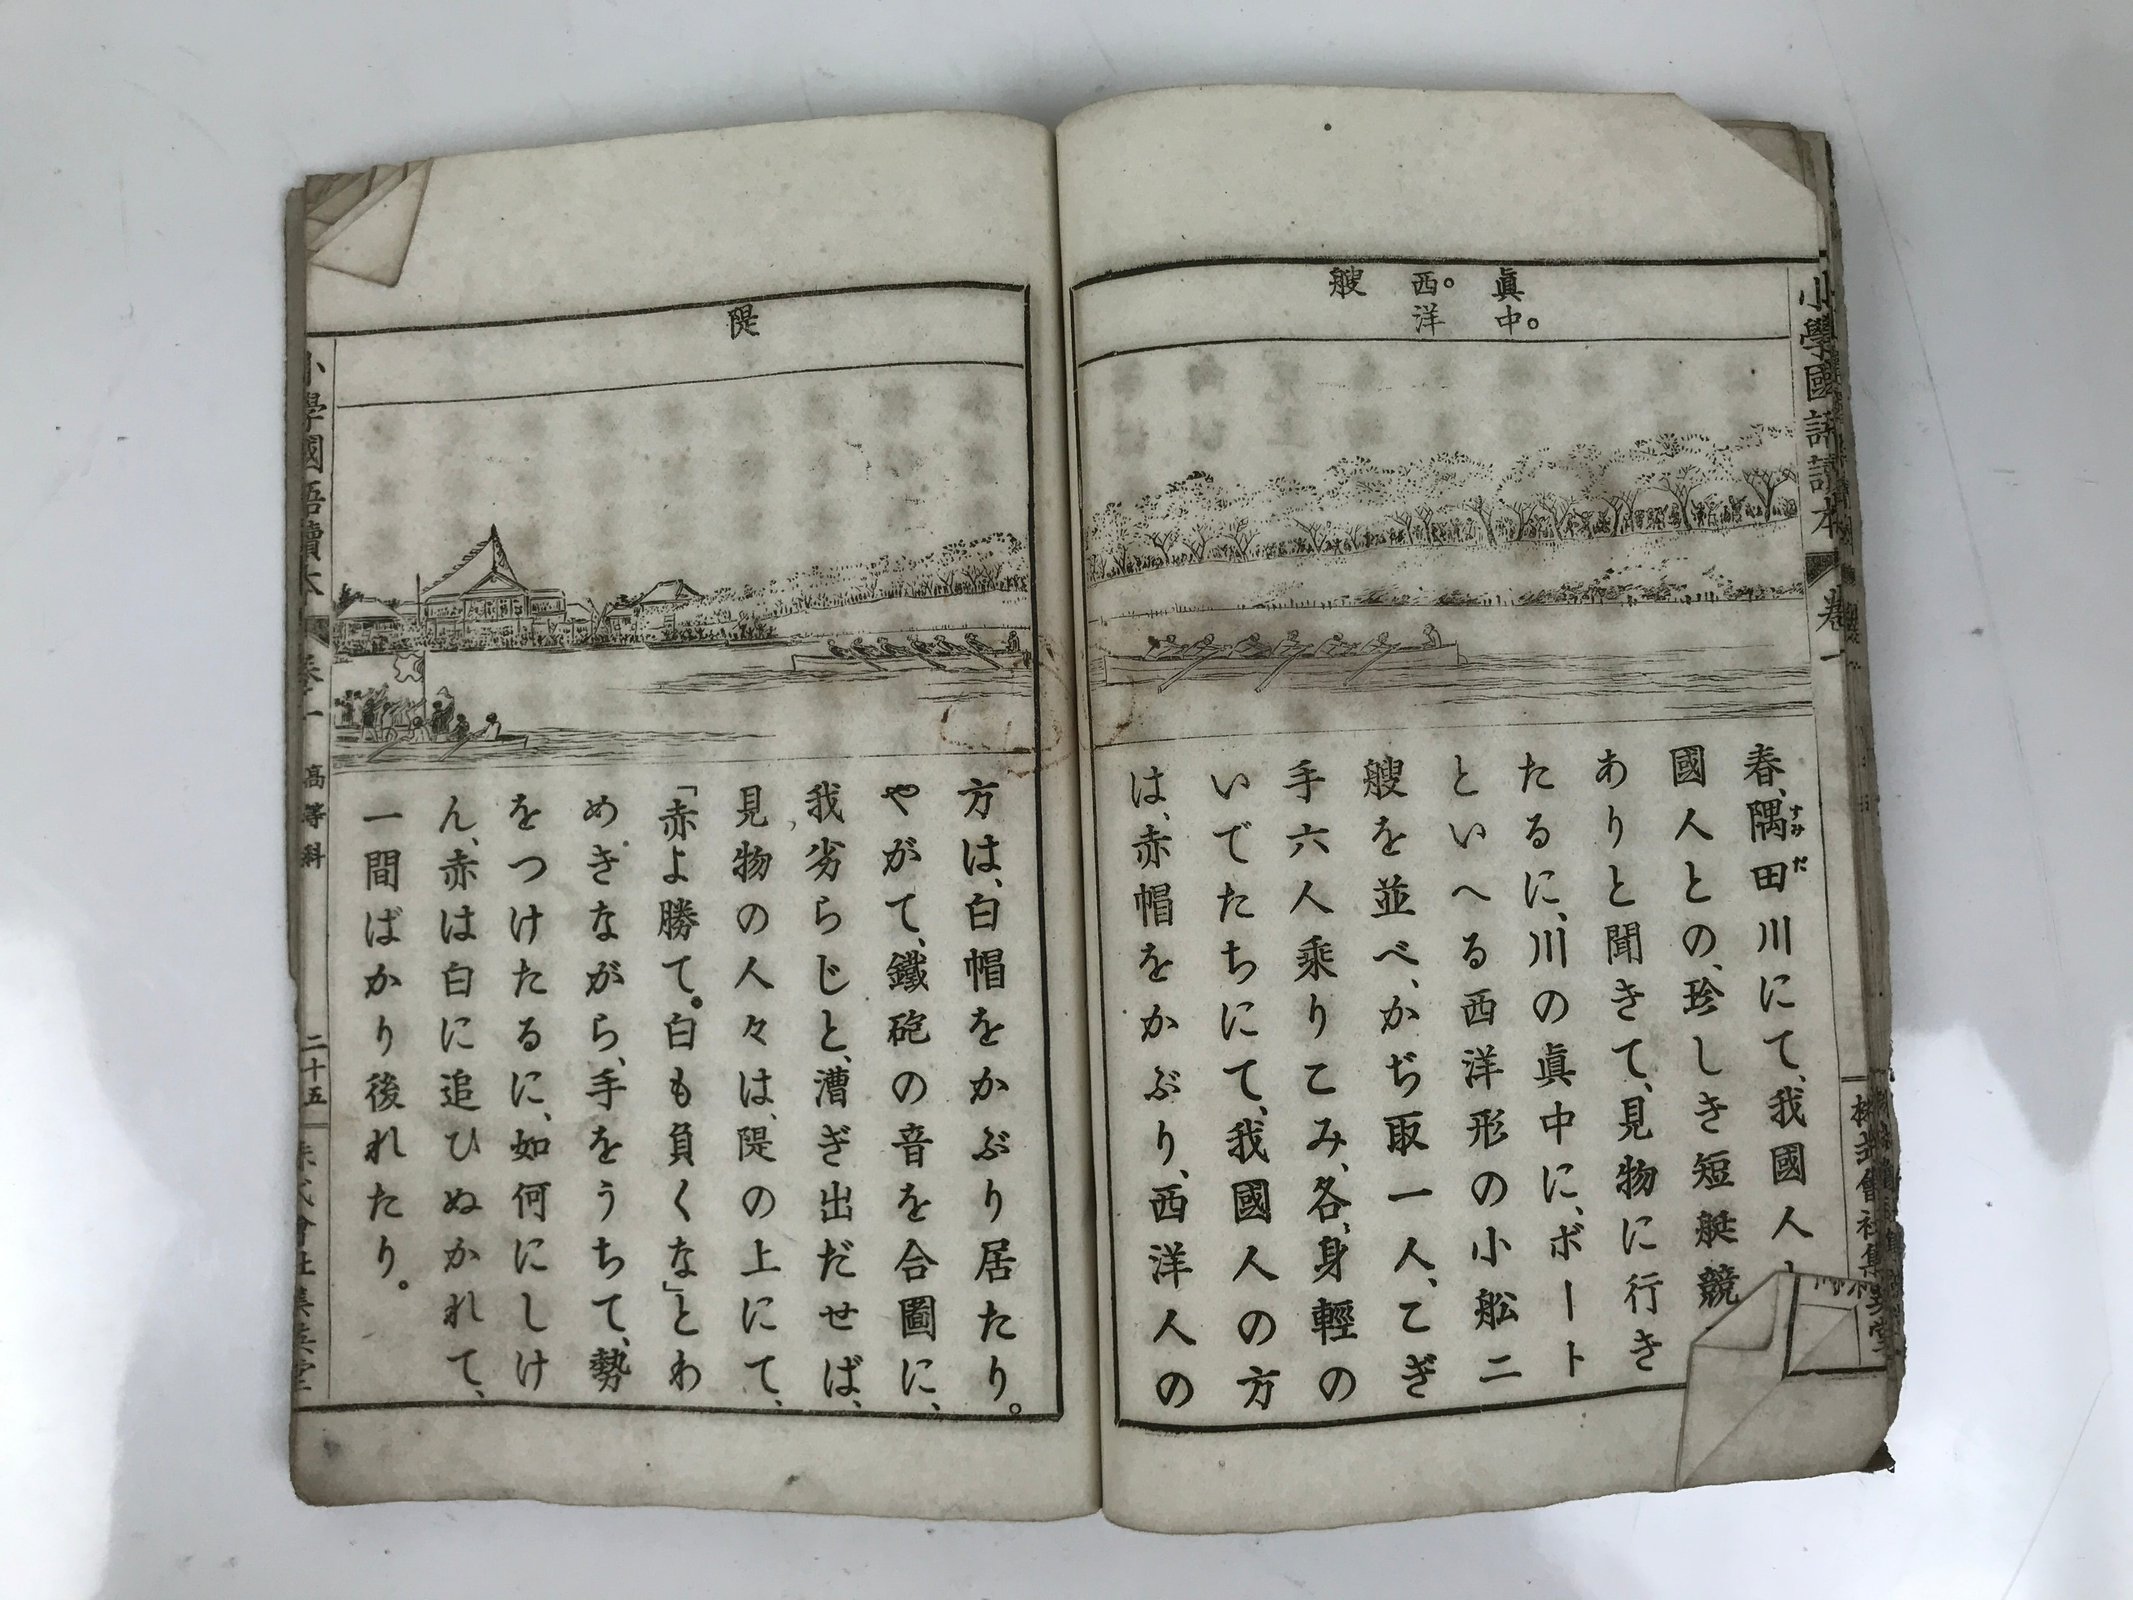 小學國語讀本
卷一
眞中。
西。洋
艘
春、隅田川にて、我國人
すみだ
國人との、珍しき短艇競
ありと聞きて、見物に行き
たるに、川の眞中に、ボート
といへる西洋形の小舩二
艘を並べ、かぢ取一人、こぎ
手六人乘りこみ、各、身輕の
いでたちにて、我國人の方
は、赤帽をかぶり、西洋人の
隄
方は、白帽をかぶり居たり。
やがて、鐵砲の音を合圖に、
我劣らじと、漕ぎ出だせば、
見物の人々は、隄の上にて、
「赤よ勝て。白も負くな」とわ
めきながら、手をうちて、勢
をつけたるに、如何にしけ
ん、赤は白に追ひぬかれて、
一間ばかり後れたり。
小學國語讀本
高等科
二十五